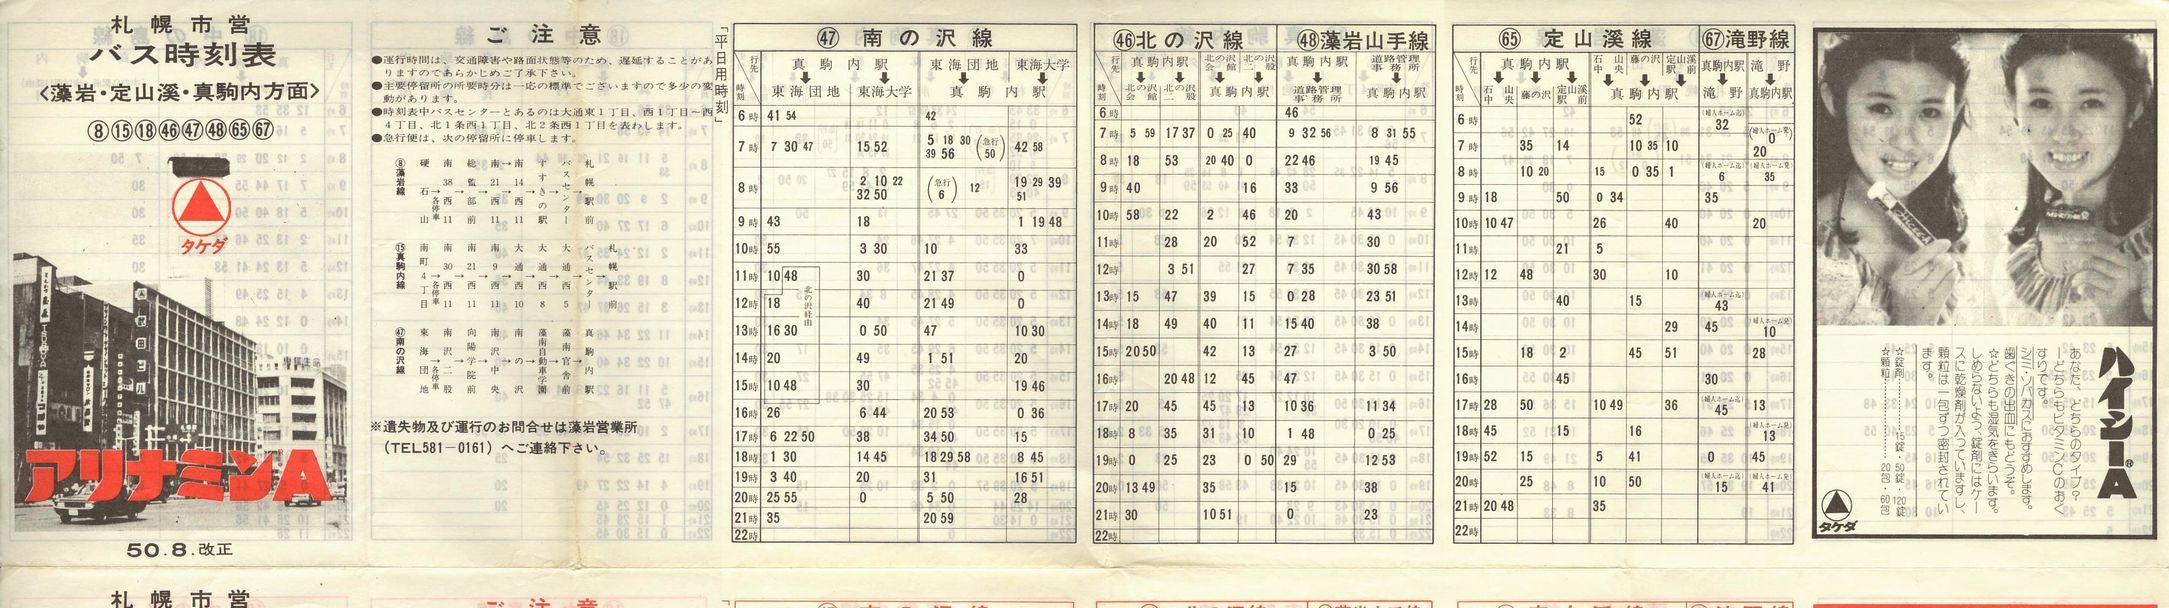 札幌市営
バス時刻表
<藻岩・定山溪・真駒内方面>
⑧⑮⑱㊻㊼㊽65 67
タケダ
アリナミンA
50.8.改正
ご注意
●運行時間は、交通障害や路面状態等のため、遅延することがあ
りますのであらかじめご了承下さい。
●主要停留所の所要時分は一応の標準でございますので多少の変
動があります。
●時刻表中バスセンターとあるのは大通東1丁目、西1丁目〜西
4丁目、北1条西1丁目、北2条西1丁目を表わします。
●急行便は、次の停留所に停車します。
⑧藻岩線
⑮真駒内線
㊼南の沢線
※遺失物及び運行のお問合せは藻岩営業所
(TEL581-0161) へご連絡下さい。
「平日用時刻」
㊼ 南の沢線
行先 時刻 真駒内駅 東海団地 東海大学
東海団地 東海大学 真駒内駅
6時 41 54 42
7時 7 30 47 15 52 5 18 30 39 56 (急行50) 42 58
8時 2 10 22 32 50 (急行6) 12 19 29 39 51
9時 43 18 1 19 48
10時 55 3 30 10 33
11時 10 48 30 21 37 0
12時 18 40 21 49 0
13時 16 30 0 50 47 10 30
14時 20 49 1 51 20
15時 10 48 30 19 46
16時 26 6 44 20 53 0 36
17時 6 22 50 38 34 50 15
18時 1 30 14 45 18 29 58 8 45
19時 3 40 20 31 16 51
20時 25 55 0 5 50 28
21時 35 20 59
22時
北の沢経由
㊻北の沢線 ㊽藻岩山手線
行先 時刻 真駒内駅 北の沢会館 北二の沢股 真駒内駅 道路管理事務所
北の沢会館 北二の沢股 真駒内駅 道路管理事務所 真駒内駅
6時 46
7時 5 59 17 37 0 25 40 9 32 56 8 31 55
8時 18 53 20 40 0 22 46 19 45
9時 40 16 33 9 56
10時 58 22 2 46 20 43
11時 28 20 52 7 30
12時 3 51 27 7 35 30 58
13時 15 47 39 15 0 28 23 51
14時 18 49 40 11 15 40 38
15時 20 50 42 13 27 3 50
16時 20 48 12 45 47
17時 20 45 45 13 10 36 11 34
18時 8 35 31 10 1 48 0 25
19時 0 25 23 0 50 29 12 53
20時 13 49 35 15 38
21時 30 10 51 0 23
22時
65 定山溪線 67滝野線
行先 時刻 真駒内駅 石山中央 藤の沢 定山溪駅前 真駒内駅 滝野
石山中央 藤の沢 定山溪駅前 真駒内駅 滝野 真駒内駅
6時 52 (婦人ホーム迄) 32
7時 35 14 10 35 10 (婦人ホーム発) 0 20
8時 10 20 15 0 35 1 (婦人ホーム迄) 6 (婦人ホーム発) 35
9時 18 50 0 34 35
10時 10 47 26 40 20
11時 21 5
12時 12 48 30 10
13時 40 15 (婦人ホーム迄) 43
14時 29 45 (婦人ホーム発) 10
15時 18 2 45 51 28
16時 45 30
17時 28 50 10 49 36 (婦人ホーム迄) 45 13
18時 45 15 16 (婦人ホーム発) 13
19時 52 15 5 41 0 45
20時 25 10 50 (婦人ホーム迄) 15 (婦人ホーム発) 41
21時 20 48 35
22時
ハイシーA®
あなた、どちらのタイプ？
ーどちらもビタミンCのおくすりです。
シミ・ソバカスにおすすめします。
歯ぐきの出血にもどうぞ。
☆どちらも湿気をきらいます。
しめらないよう、錠剤にはケースに乾燥剤が入っていますし、
顆粒は一包ずつ密封されています。
☆錠剤……15錠・50錠・120錠
☆顆粒……20包・60包
タケダ
札幌市営
ご注意